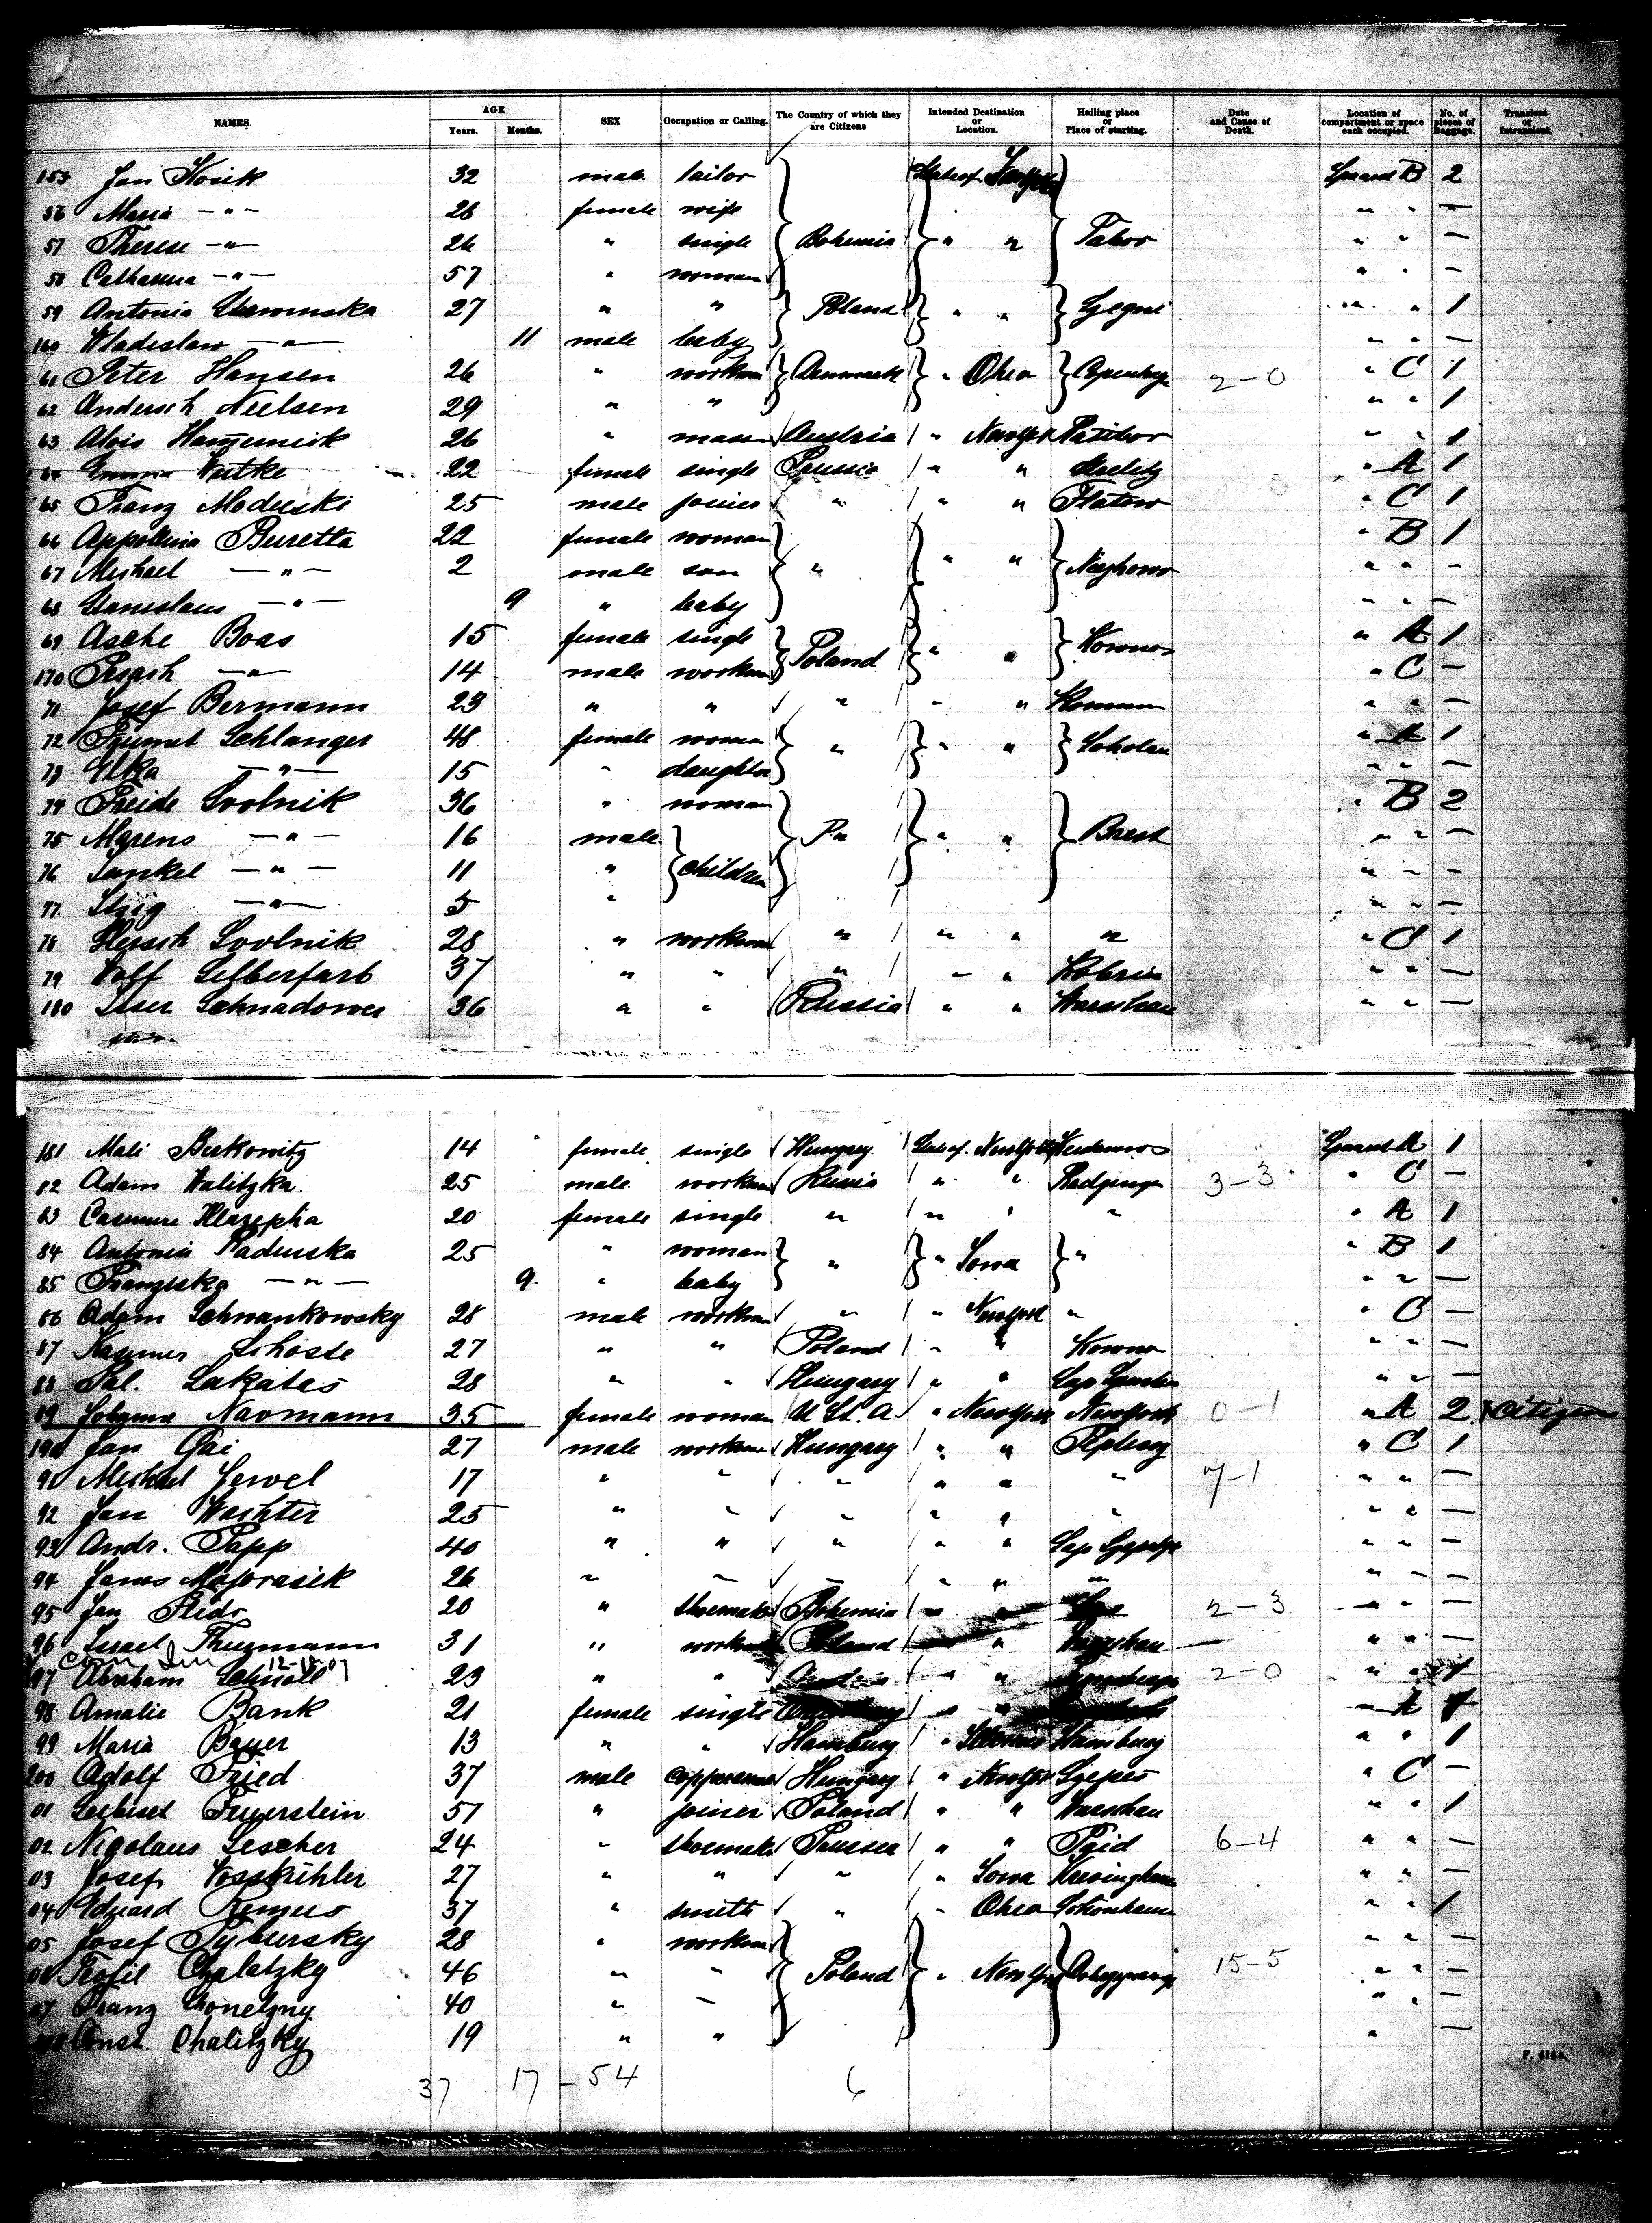 NAMES. AGE Years. Months. SEX Occupation or Calling. The Country of which they are Citizens Intended Destination or Location. Hailing place or Place of starting. Date and Cause of Death. Location of compartment or space each occupied. No. of pieces of Baggage. Transient or Intransient.
155 Jan Kosik 32 male tailor State of B 2
56 Maria - " - 28 female wife " " —
57 Therese - " - 26 " single Bohemia " " Tabor " " —
58 Catharina - " - 57 " woman " " —
59 Antonia 27 " " Poland " " " " 1
160 Wladislaw - " - 11 male baby " " —
61 Peter Hansen 26 " workman Denmark " Ohio 2-0 " C 1
62 Andersch Nielsen 29 " " " " 1
63 Alois 26 " mason Austria " New York Ratibor " " 1
64 Emma Wutke 22 female single Prussia " " " A 1
65 Franz Moduski 25 male joiner " " " Flatow " C 1
66 Appollina Buretta 22 female woman " B 1
67 Michael - " - 2 male son " " " " " -
68 Stanislaus - " - 9 " baby " " —
69 Asche Boas 15 female single Poland " " Kowno " A 1
170 Pesach - " - 14 male workman " C —
71 Josef Bermann 23 " " " " " " " —
72 Schlanger 48 female woman " " " " A 1
73 Elka - " - 15 " daughter " " —
74 Freide Svolnik 36 " woman " B 2
75 - " - 16 male " " " Brest " " —
76 Jankel - " - 11 " children " " —
77 - " - 5 " " " —
78 Hersch Svolnik 28 " workman " " " " " C 1
79 Wolf Silberfarb 37 " " " " " Kobrin " " —
180 Leser Schnadower 36 " " Russia " " Warschau " " —
181 Mali Berkowitz 14 female single Hungary State of New York A 1
82 Adam Walitzka 25 male workman Russia " " 3-3 " C —
83 20 female single " " " " " A 1
84 Antonia Paduska 25 " woman " " Iowa " " B 1
85 Franziska - " - 9 " baby " " —
86 Adam Schwankowsky 28 male workman " " New York " " C —
87 27 " " Poland " " Kowno " " —
88 Pal. Lakatas 28 " " Hungary " " " " —
89 Johanna Naumann 35 female woman U St. A " New York New York 0-1 " A 2 Citizen
190 Jan Gai 27 male workman Hungary " " " C 1
91 Michael Jewel 17 " " " " " " 7-1 " " —
92 Jan Wachter 25 " " " " " " " " —
93 Andr. Papp 40 " " " " " " " —
94 Janos 26 " " " " " " " " —
95 Jan 20 " shoemaker Bohemia " " 2-3 " " —
96 Israel 31 " workman Poland " " Warschau " " —
12-18-07
97 Abraham Schnoll 23 " " " " 2-0 " " 1
98 Amalie Bank 21 female single " " A 1
99 Maria Bauer 13 " " Hamburg " Hamburg " " 1
200 Adolf Fried 37 male Hungary " New York Szepes " C —
01 Feuerstein 57 " joiner Poland " " Warschau " " 1
02 Nicolaus Lescher 24 " shoemaker Prussia " " 6-4 " " —
03 Josef Vosskühler 27 " " " " Iowa " " —
04 Eduard Remus 37 " smith " " Ohio " " 1
05 Josef Tybursky 28 " workman " " —
06 Teofil Chalatzky 46 " " Poland " New York 15-5 " " —
07 Franz 40 " " " " —
208 Const. Chalitzky 19 " " " —
37 17 - 54 6